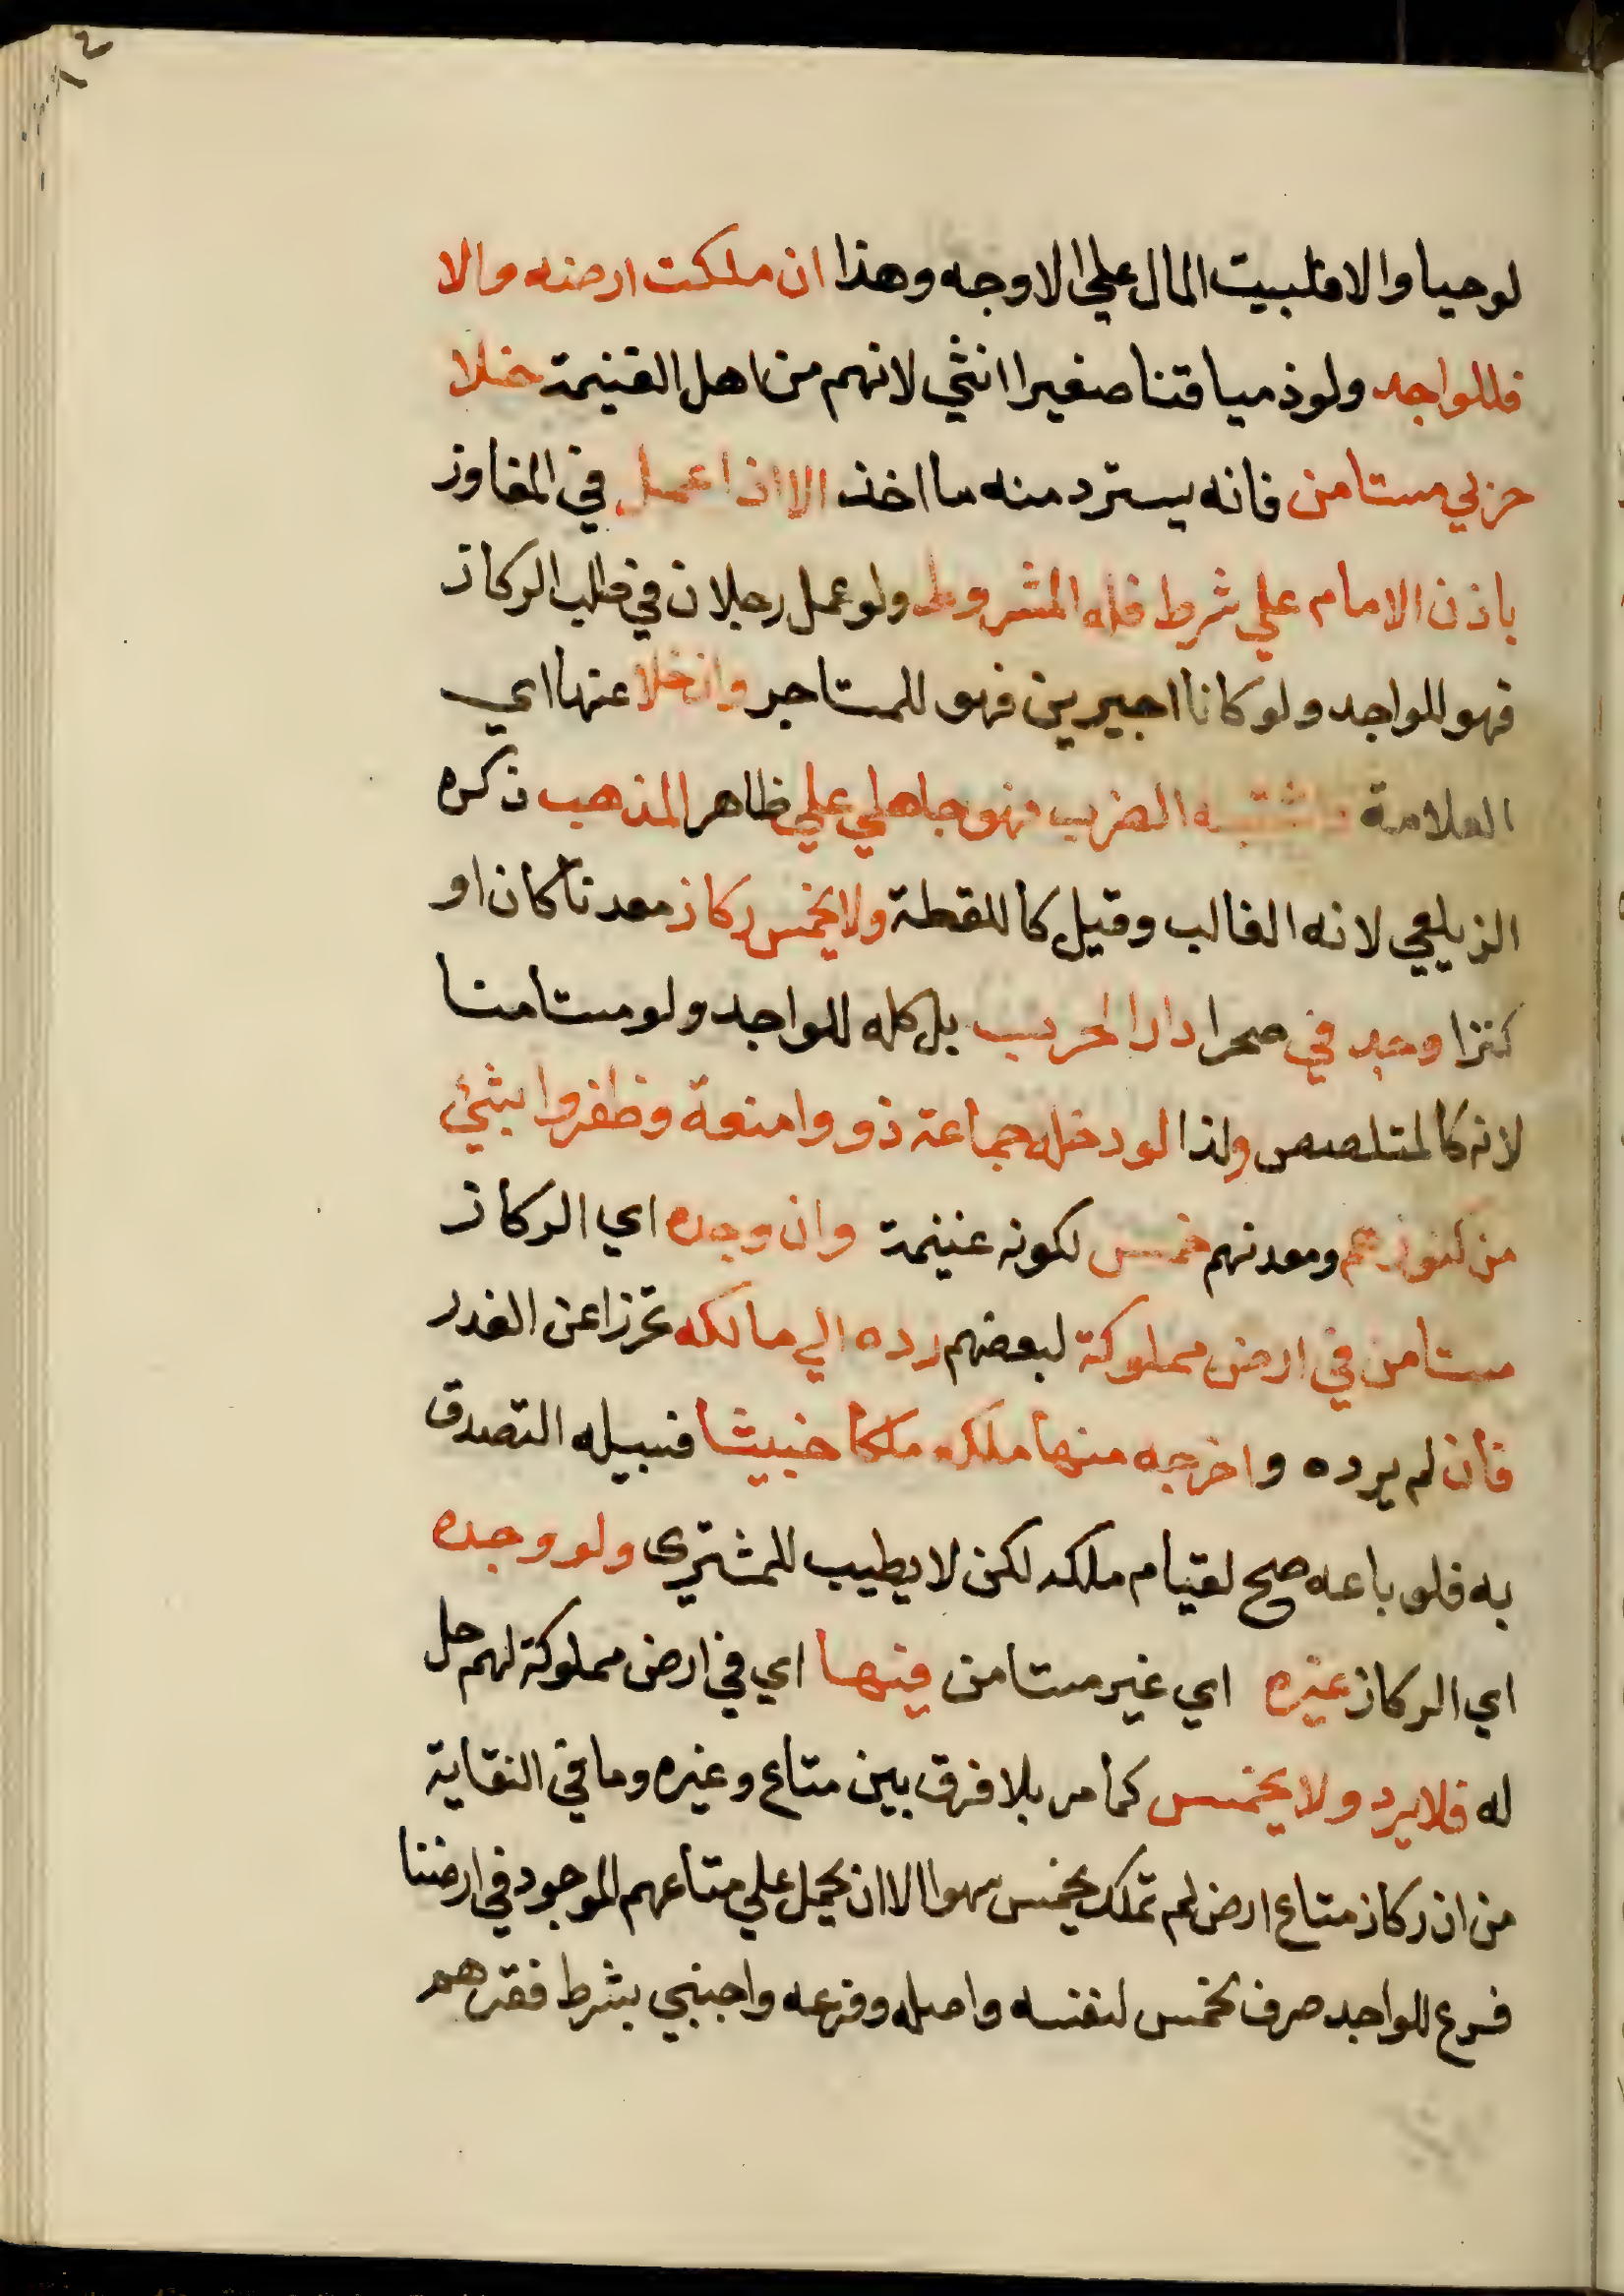 لوحيا والا فلبيت المال علي الاوجه وهذا ان ملكت ارضه والا
فللواجد ولو ذميا قنا صغيرا انثي لانهم من اهل الغنيمة خلا
حربي مستامن فانه يسترد منه ما اخذ الا اذا عمل في المفاوز
باذن الامام علي شرط فله المشروط ولو عمل رجلان في طلب الركاز
فهو للواجد ولو كانا اجيرين فهو للمستاجر وان خلا عنها اي
العلامة او اشتبه الضرب فهو جاهلي علي ظاهر المذهب ذكره
الزيلعي لانه الغالب وقيل كاللقطة ولا يخمس ركاز معدنا كان او
كنزا وجد في صحرا دار الحرب بل كله للواجد ولو مستامنا
لانه كالمتلصص ولذا لو دخل جماعة ذووا منعة وظفروا بشئ
من كنوزهم ومعدنهم خمس لكونه غنيمة وان وجده اي الركاز
مستامن في ارض مملوكة لبعضهم رده الي مالكه تحرزا عن الغدر
فان لم يرده واخرجه منها ملكه ملكا خبيثا فسبيله التصدق
به فلو باعه صح لقيام ملكه لكن لا يطيب للمشتري ولو وجده
اي الركاز غيره اي غير مستامن فيها اي في ارض مملوكة لهم حل
له فلا يرد ولا يخمس كما مر بلا فرق بين متاع وغيره وما في النقاية
من ان ركاز متاع ارض لم تملك يخمس سهو الا ان يحمل علي متاعهم الموجود في ارضنا
فرع للواجد صرف الخمس لنفسه واصله وفرعه واجنبي بشرط فقرهم